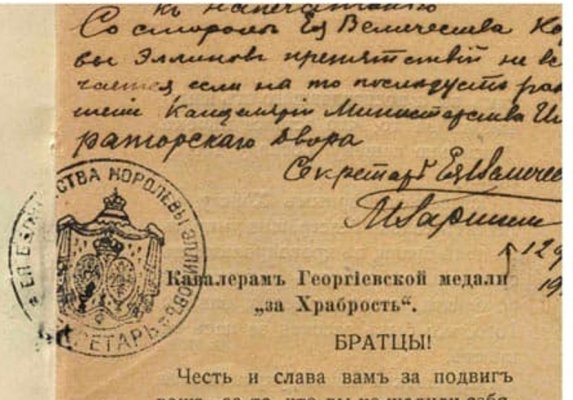 къ напечатанію
Со стороны Ея Величества Ко
вы Эллиновъ препятствій не вс
чается, если на то послѣдуетъ раз
шеніе Канцеляріи Министерства И
раторскаго Двора
Секретарь Ея Величес
СТВА КОРОЛЕВЫ ЭЛЛИНОВЪ
РЕТАРЬ
Кавалерамъ Георгіевской медали
„за Храбрость“.
БРАТЦЫ!
Честь и слава вамъ за подвигъ
за то, что вы не жалѣли себя